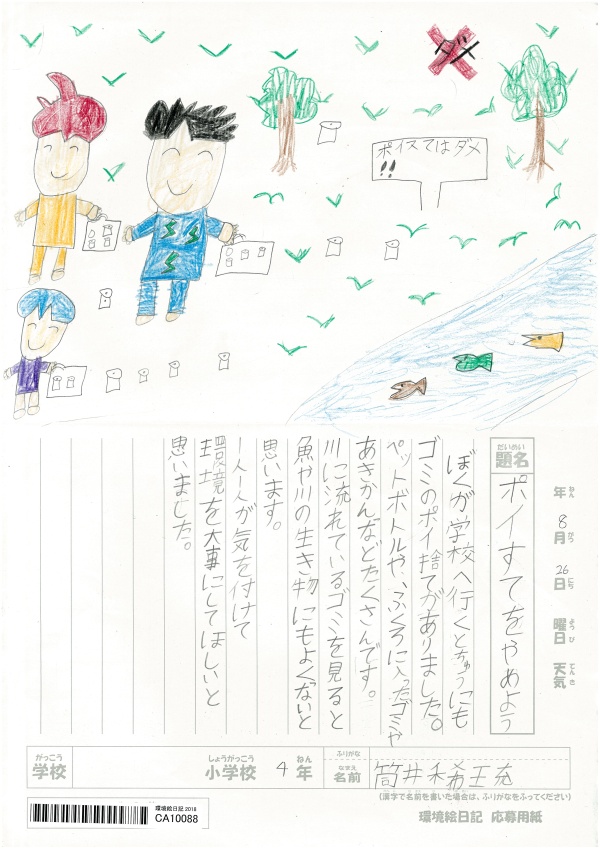 ダメ
ポイステはダメ
!!
年 ねん
8月 がつ
26日 にち
曜日 ようび
天気 てんき
だいめい
題名
ポイすてをやめよう
ぼくが学校へ行くとちゅうにも
ゴミのポイ捨てがありました。
ペットボトルや、ふくろに入ったゴミや
あきかんなどたくさんです。
川に流れているゴミを見ると
魚や川の生き物にもよくないと
思います。
一人一人が気を付けて
環境を大事にしてほしいと
思いました。
がっこう
学校
しょうがっこう ねん
小学校 4年
ふりがな
なまえ
名前
筒井
(漢字で名前を書いた場合は、ふりがなをふってください)
環境絵日記 応募用紙
環境絵日記 2018
CA10088